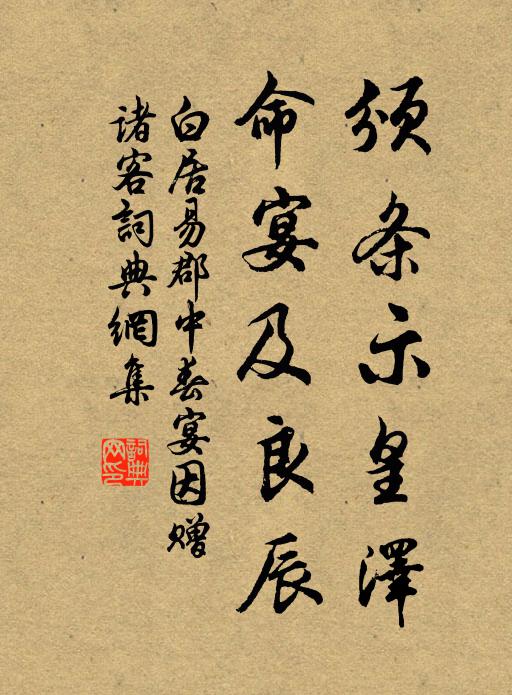 颁条示皇澤
命宴及良辰
白居易郡中春宴因赠
诸客詞典網集
詞典网印